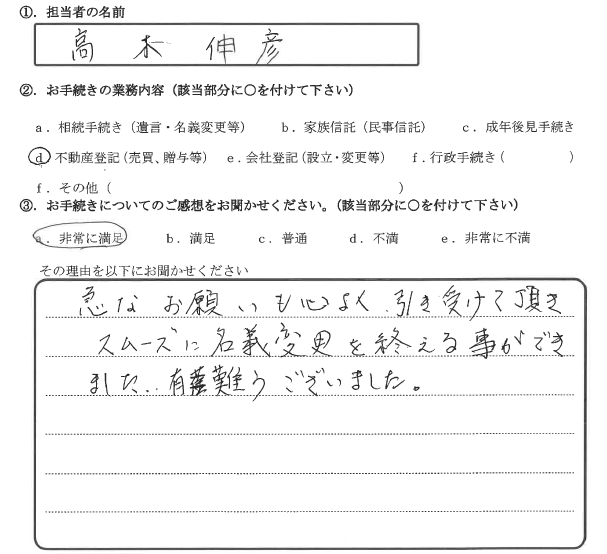 ①．担当者の名前
高木伸彦
②．お手続きの業務内容（該当部分に○を付けて下さい）
a．相続手続き（遺言・名義変更等）　b．家族信託（民事信託）　c．成年後見手続き
d 不動産登記（売買、贈与等）　e．会社登記（設立・変更等）　f．行政手続き（　　　）
f．その他（　　　）
③．お手続きについてのご感想をお聞かせください。（該当部分に○を付けて下さい）
a．非常に満足　b．満足　c．普通　d．不満　e．非常に不満
その理由を以下にお聞かせください
急なお願いも心よく引き受けて頂き
スムーズに名義変更を終える事ができ
ました．有難うございました。